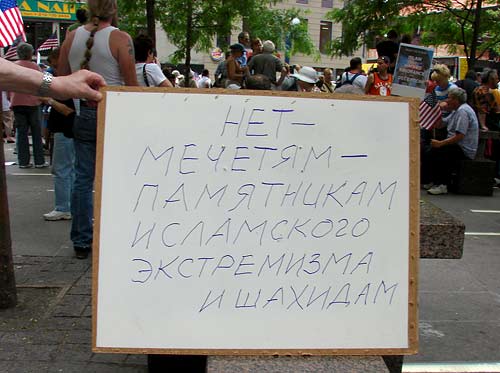 НЕТ—
МЕЧЕТЯМ—
ПАМЯТНИКАМ
ИСЛАМСКОГО
ЭКСТРЕМИЗМА
И ШАХИДАМ